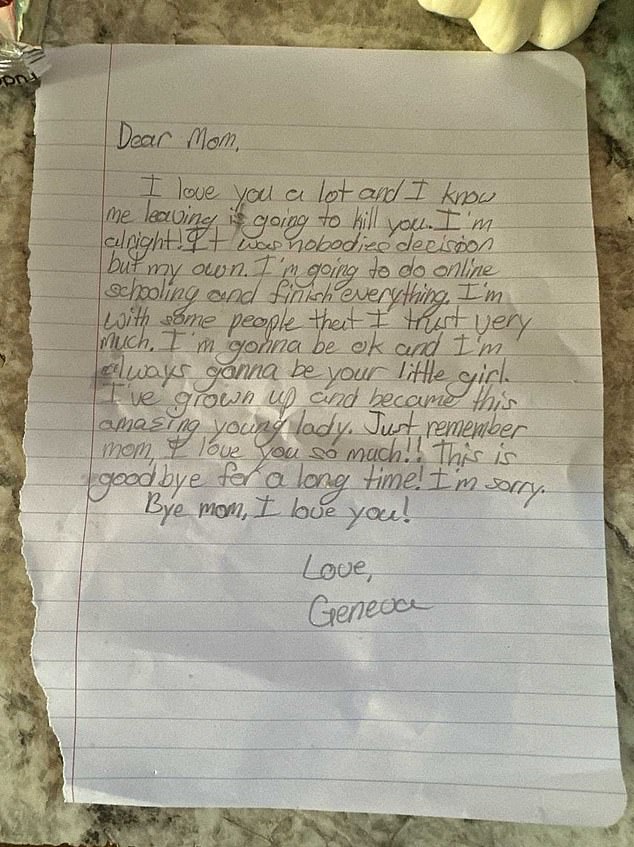 Dear Mom,
I love you a lot and I know
me leaving is going to kill you. I'm
alright! It was nobodies decision
but my own. I'm going to do online
schooling and finish everything. I'm
with some people that I trust very
much. I'm gonna be ok and I'm
always gonna be your little girl.
I've grown up and became this
amazing young lady. Just remember
mom, I love you so much!! This is
goodbye for a long time! I'm sorry.
Bye mom, I love you!
Love,
Geneva